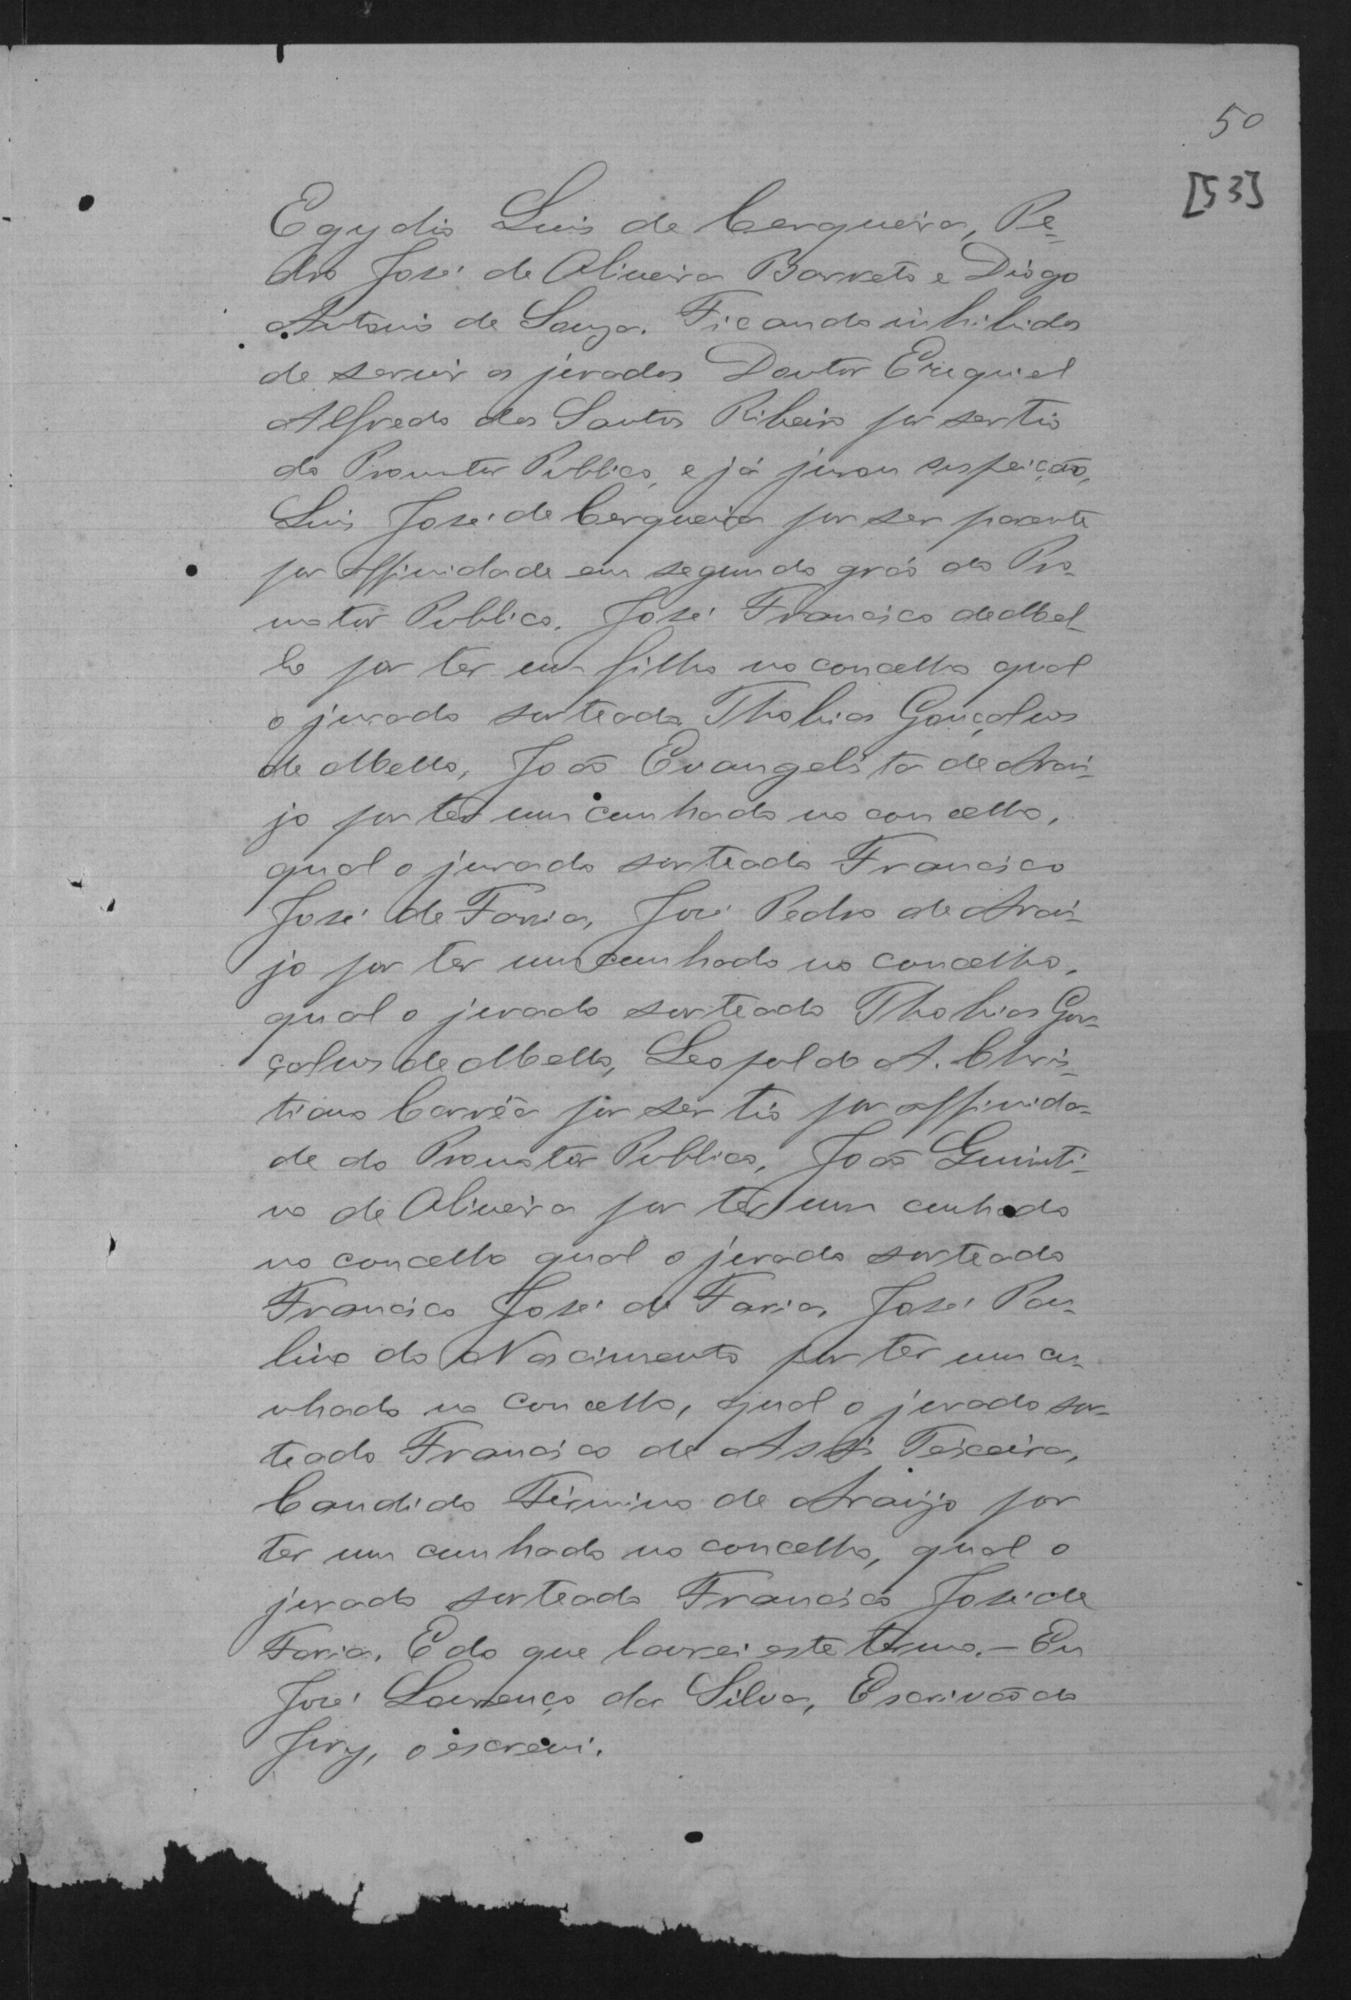 50
[53]
Egydio Luis de Cerqueira, Pe-
dro José de Oliveira Barreto e Diogo
Antonio de Souza. Ficando inhibidos
de servir os jurados Doutor Ezequiel
Alfredo dos Santos Ribeiro por ser tio
do Promotor Publico, e já jurou suspeição,
Luis José de Cerqueira por ser parente
por affinidade em segundo gráo do Pro-
motor Publico. José Francisco de Mel-
lo por ter um filho no concelho qual
o jurado sorteado Thobias Gonçalves
de Mello, João Evangelista de Arau-
jo por ter um cunhado no concelho,
qual o jurado sorteado Francisco
José de Faria, José Pedro de Arau-
jo por ter um cunhado no concelho,
qual o jurado sorteado Thobias Gon-
çalves de Mello, Leopoldo A. Chris-
tiano Corrêa por ser tio por affinida-
de do Promotor Publico, João Quinti-
no de Oliveira por ter um cunhado
no concelho qual o jurado sorteado
Francisco José de Faria, José Pau-
lino do Nascimento por ter um cu-
nhado no concelho, qual o jurado sor-
teado Francisco de Assis Teixeira,
Candido Firmino de Araujo por
ter um cunhado no concelho, qual o
jurado sorteado Francisco José de
Faria. E do que lavrei este termo. — Eu
José Lourenço da Silva, Escrivão do
Jury, o escrevi.